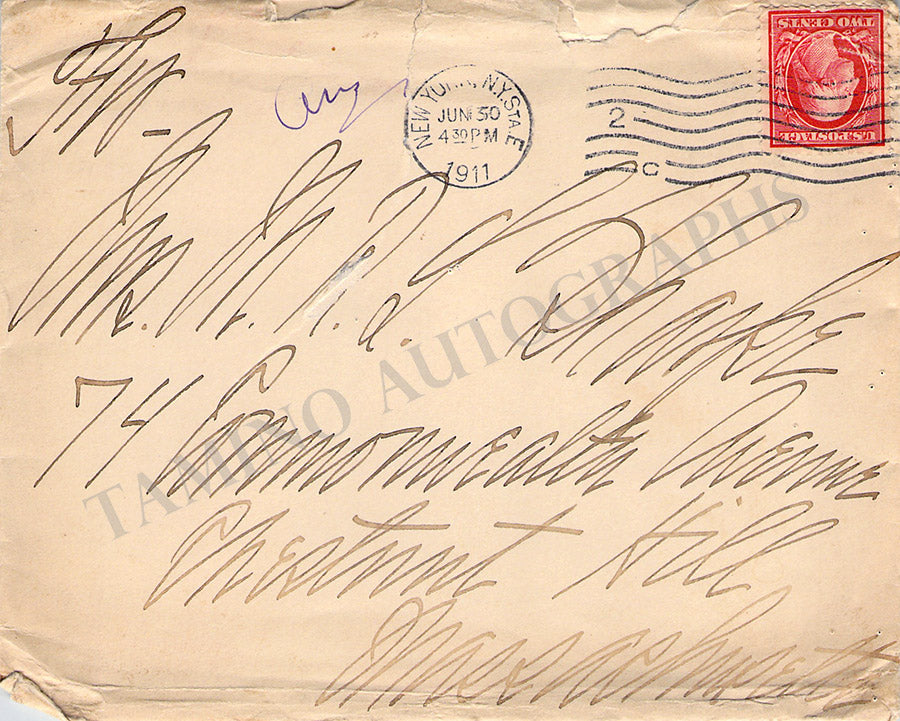 NEW YORK, N.Y. STA. E
JUN 30
4 30 PM
1911
2
C
TWO CENTS
U.S. POSTAGE
Mrs. H. R.
74 Commonwealth Avenue
Chestnut Hill
Massachusetts
TAMINO AUTOGRAPHS